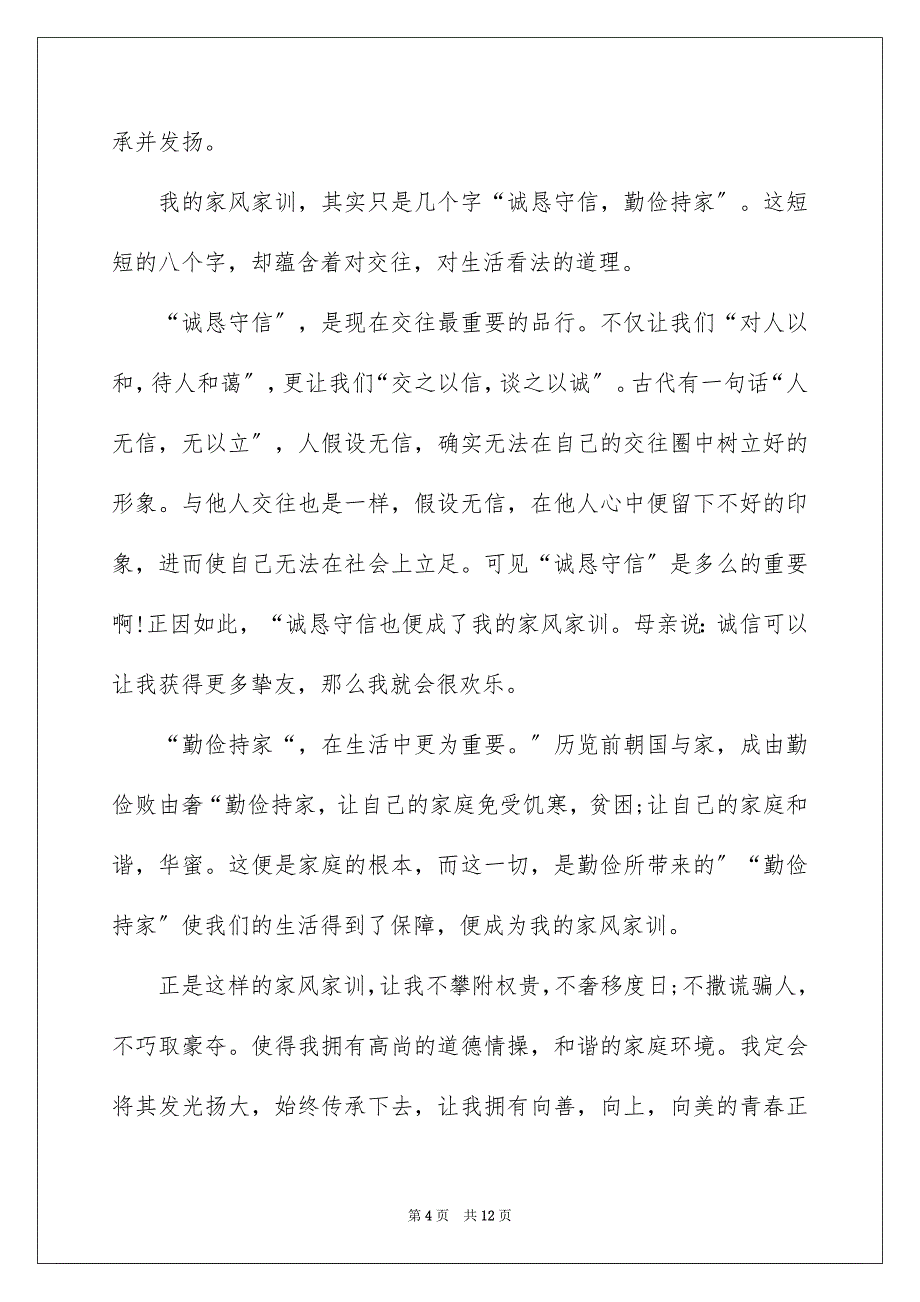 承并发扬。
我的家风家训，其实只是几个字“诚恳守信，勤俭持家〞。这短
短的八个字，却蕴含着对交往，对生活看法的道理。
“诚恳守信〞，是现在交往最重要的品行。不仅让我们“对人以
和，待人和蔼〞，更让我们“交之以信，谈之以诚〞。古代有一句话“人
无信，无以立〞，人假设无信，确实无法在自己的交往圈中树立好的
形象。与他人交往也是一样，假设无信，在他人心中便留下不好的印
象，进而使自己无法在社会上立足。可见“诚恳守信〞是多么的重要
啊!正因如此，“诚恳守信也便成了我的家风家训。母亲说：诚信可以
让我获得更多挚友，那么我就会很欢乐。
“勤俭持家“，在生活中更为重要。〞历览前朝国与家，成由勤
俭败由奢“勤俭持家，让自己的家庭免受饥寒，贫困;让自己的家庭和
谐，华蜜。这便是家庭的根本，而这一切，是勤俭所带来的〞“勤俭
持家〞使我们的生活得到了保障，便成为我的家风家训。
正是这样的家风家训，让我不攀附权贵，不奢移度日;不撒谎骗人，
不巧取豪夺。使得我拥有高尚的道德情操，和谐的家庭环境。我定会
将其发光扬大，始终传承下去，让我拥有向善，向上，向美的青春正
第 4 页 共 12 页